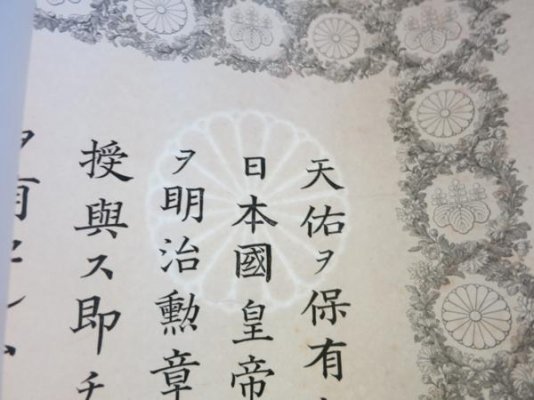 天佑ヲ保有
日本國皇帝
ヲ明治勲章
授與ス即チ
ヲ有